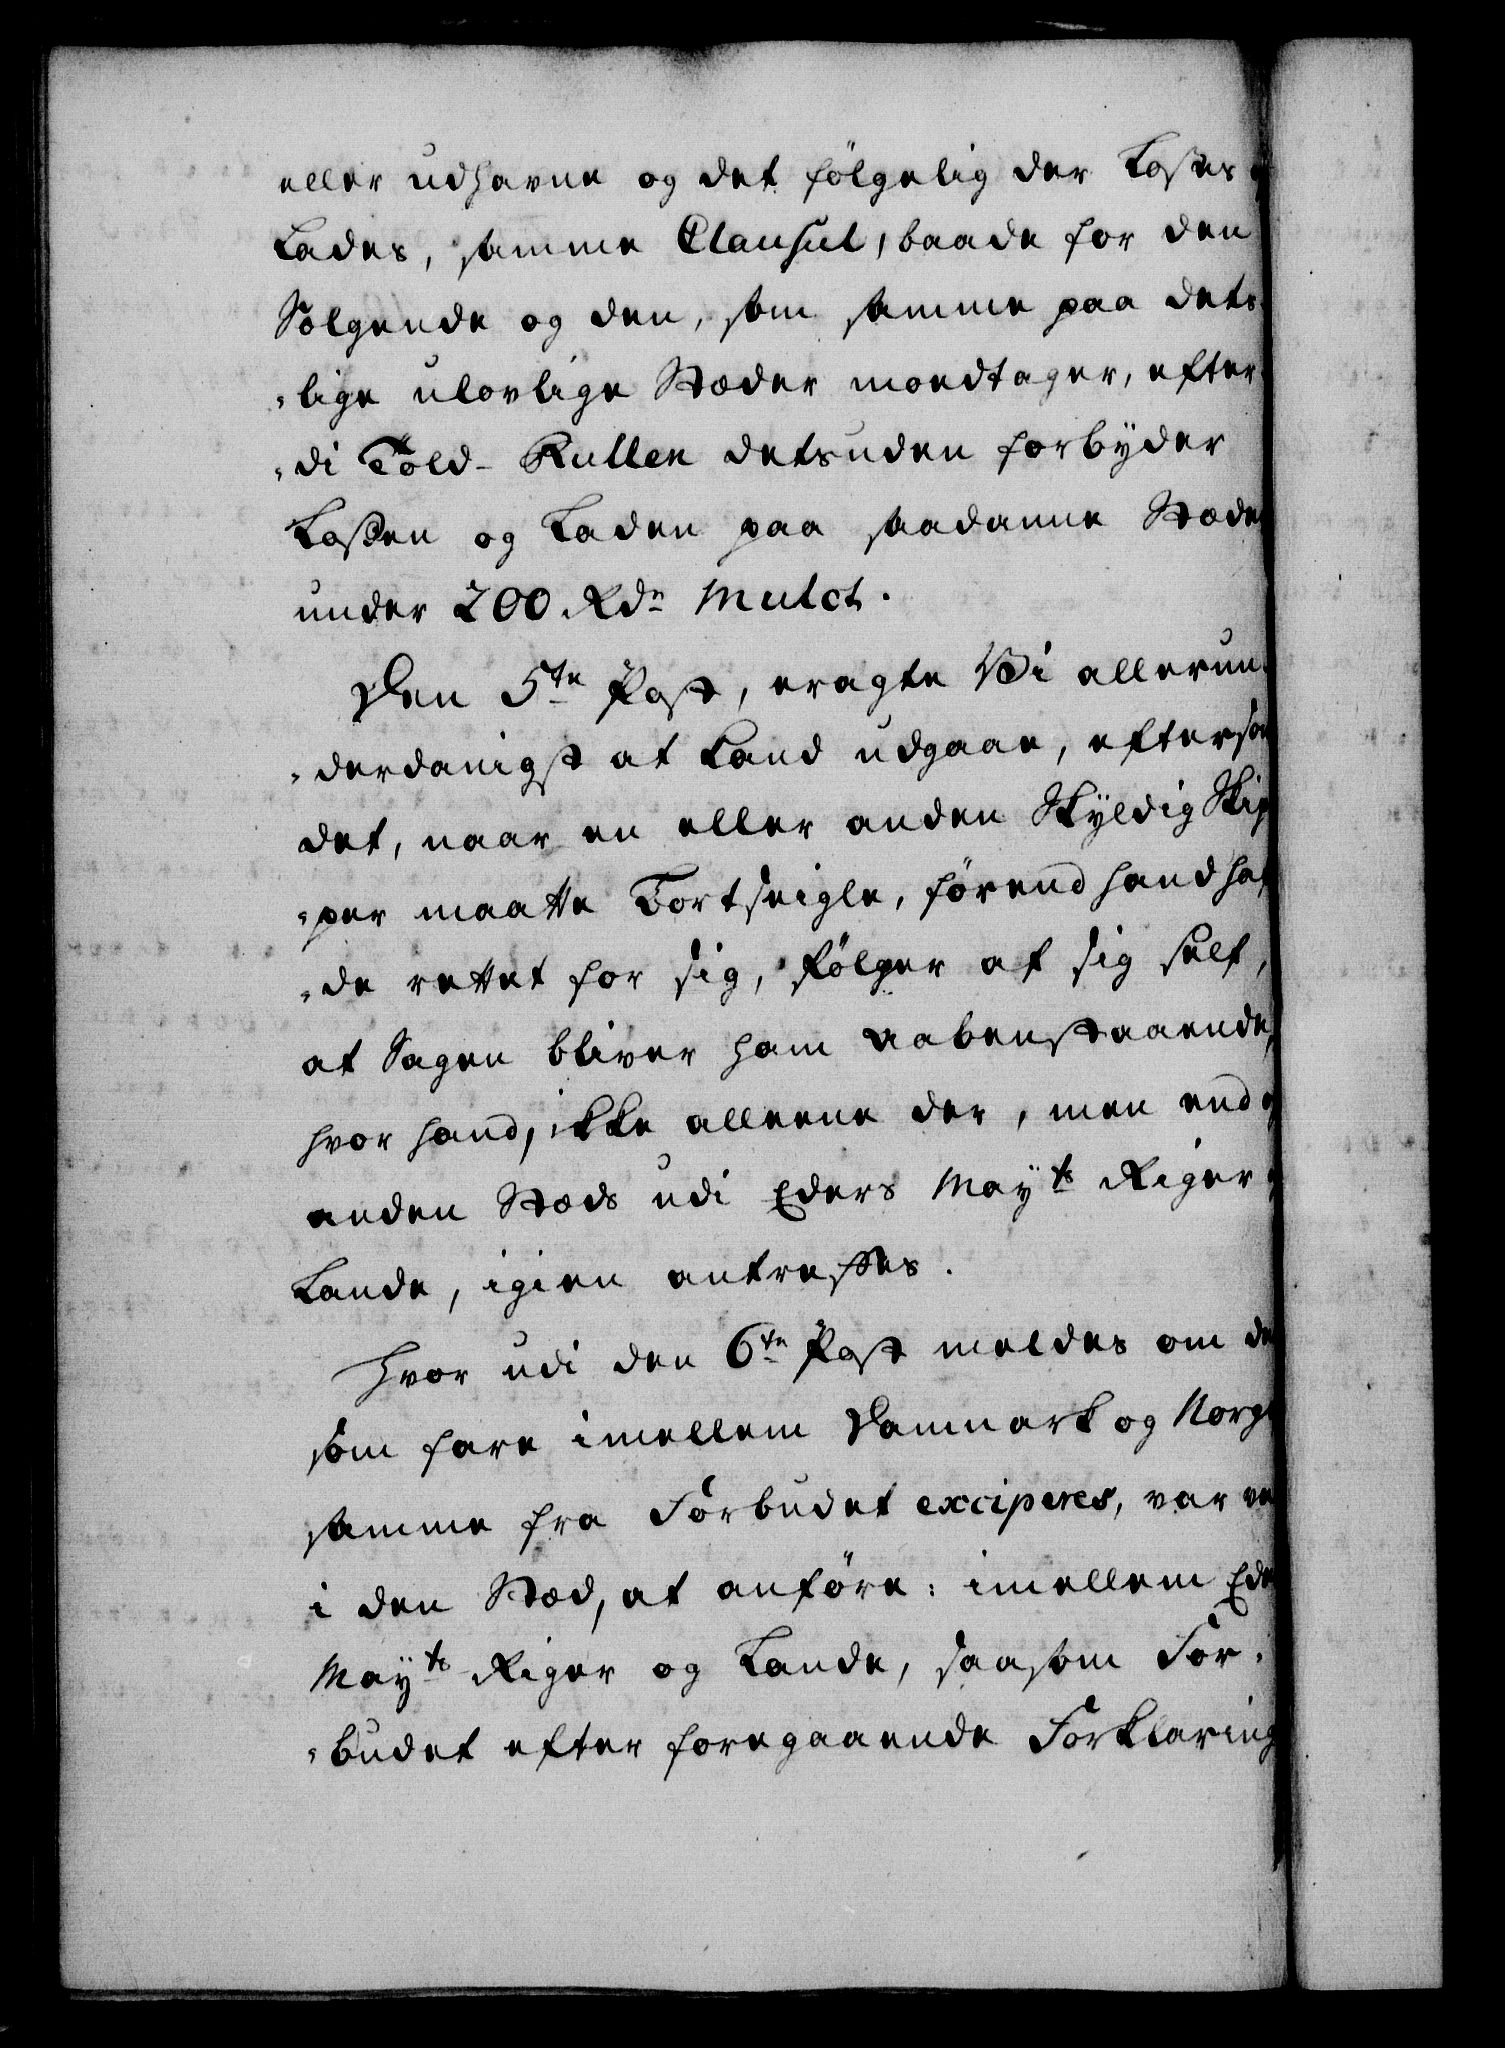 eller udhavne og det følgelig der Losses
Lades, samme Clausul, baade for den
Sælgende og den, som samme paa dets¬
„lige ulovlige Stæder modtager, efter¬
„di Told-Rullen detsuden forbÿder
Lossen og Laden paa saadanne Stæder
under 200 Rdr Mulct.
Den 5te Post, eragte Vi allerun¬
„derdanigst at kand udgaae, eftersom
det, naar en eller anden Skÿldig Skip
„per maatte Bortseigle, førend hand haf
„de rettet for sig, følger af sig self,
at Sagen bliver ham aabenstaaende,
hvor hand, ikke alleene der, men end
anden Stæds udi Eders Mayts Riger
Lande, igien antreffes.
Hvor udi den 6te Post meldes om de
som fare imellem Danmark og Norge
samme fra Forbudet exciperes, var
i den Stæd, at anføre: imellem Eders
Mayts Riger og Lande, saasom For¬
„budet efter foregaaende Forklaring